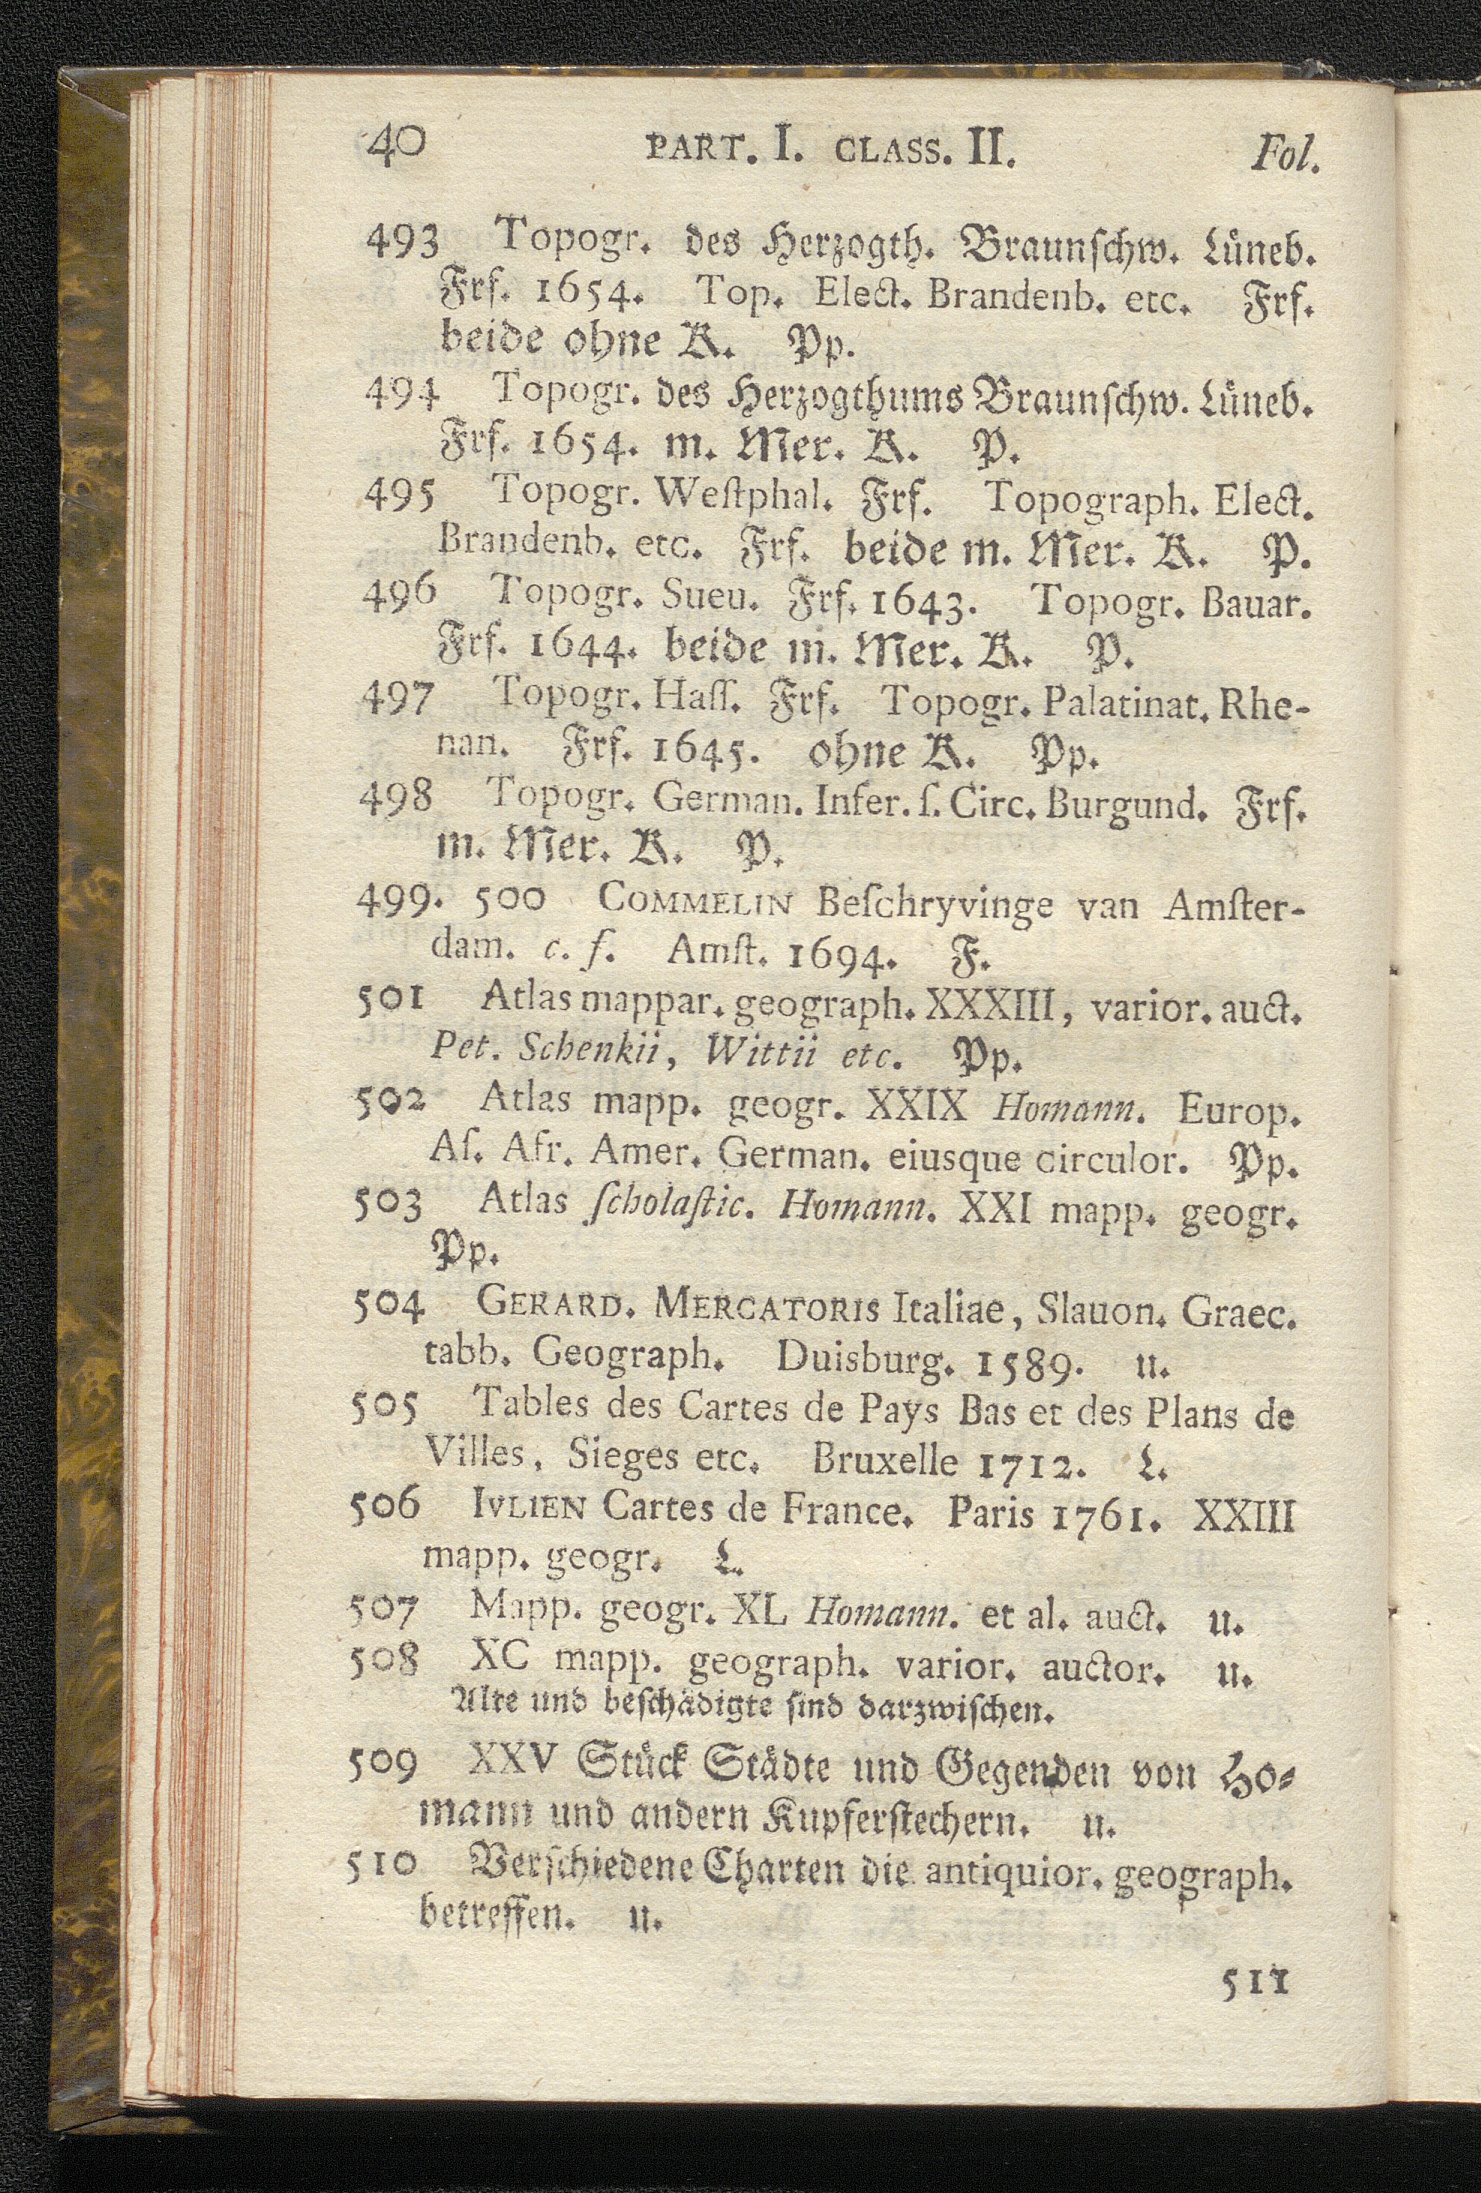 40 PART. I. CLASS. II. Fol.
493 Topogr. des Herzogth. Braunſchw. Lüneb.
Frf. 1654. Top. Elect. Brandenb. etc. Frf.
beide ohne K. Pp.
494 Topogr. des Herzogthums Braunſchw. Lüneb.
Frf. 1654. m. Mer. K. P.
495 Topogr. Weſtphal. Frf. Topograph. Elect.
Brandenb. etc. Frf. beide m. Mer. K. P.
496 Topogr. Sueu. Frf. 1643. Topogr. Bauar.
Frf. 1644. beide m. Mer. K. P.
497 Topogr. Haſſ. Frf. Topogr. Palatinat. Rhe-
nan. Frf. 1645. ohne K. Pp.
498 Topogr. German. Infer. ſ. Circ. Burgund. Frf.
m. Mer. K. P.
499. 500 COMMELIN Beſchryvinge van Amſter-
dam. c. f. Amſt. 1694. F.
501 Atlas mappar. geograph. XXXIII, varior. auct.
Pet. Schenkii, Wittii etc. Pp.
502 Atlas mapp. geogr. XXIX Homann. Europ.
Aſ. Afr. Amer. German. eiusque circulor. Pp.
503 Atlas ſcholaſtic. Homann. XXI mapp. geogr.
Pp.
504 GERARD. MERCATORIS Italiae, Slauon. Graec.
tabb. Geograph. Duisburg. 1589. u.
505 Tables des Cartes de Pays Bas et des Plans de
Villes, Sieges etc. Bruxelle 1712. L.
506 IVLIEN Cartes de France. Paris 1761. XXIII
mapp. geogr. L.
507 Mapp. geogr. XL Homann. et al. auct. u.
508 XC mapp. geograph. varior. auctor. u.
Alte und beſchädigte ſind darzwiſchen.
509 XXV Stück Städte und Gegenden von Ho-
mann und andern Kupferſtechern. u.
510 Verſchiedene Charten die antiquior. geograph.
betreffen. u.
511